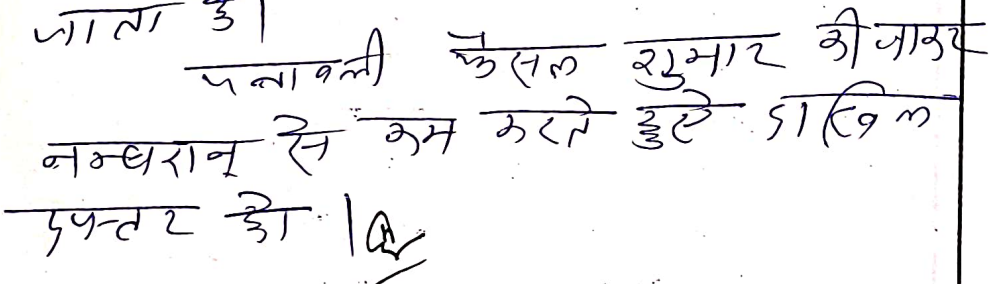 जाता है।
पत्रावली फैसल शुमार की जाकर
नम्बरान् से कम करते हुए दाखिल
दफ्तर हो।